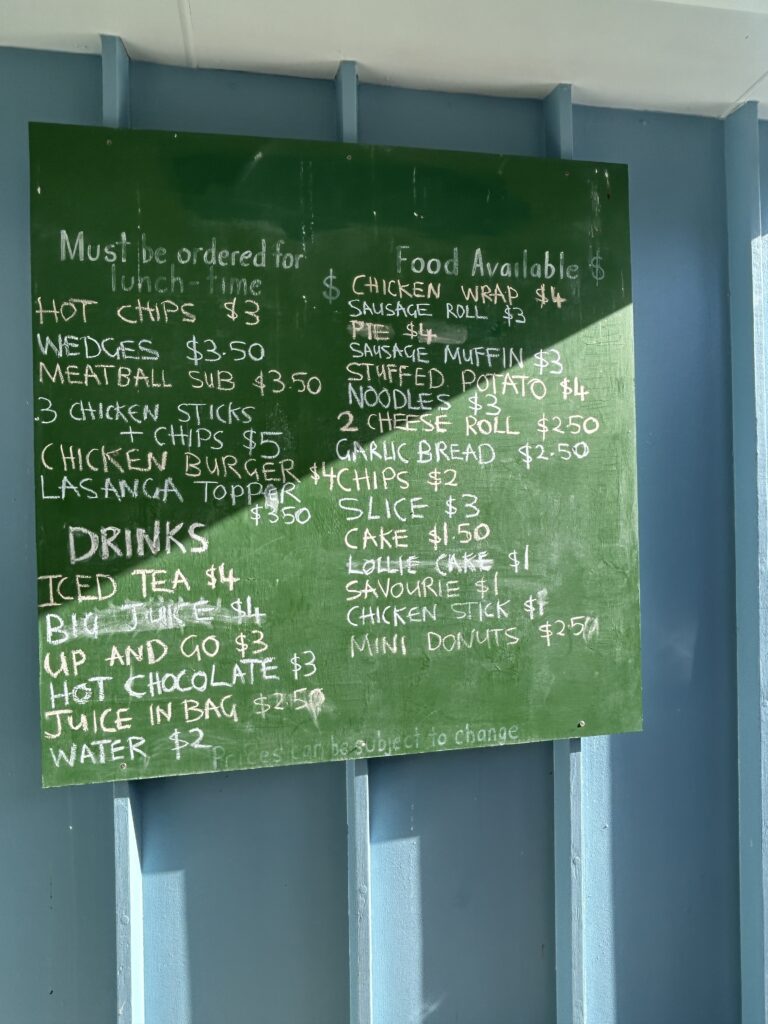 Must be ordered for
lunch-time $
HOT CHIPS $3
WEDGES $3.50
MEATBALL SUB $3.50
3 CHICKEN STICKS
+ CHIPS $5
CHICKEN BURGER $4
LASANGA TOPPER
$350
DRINKS
ICED TEA $4
BIG JUICE $4
UP AND GO $3
HOT CHOCOLATE $3
JUICE IN BAG $2.50
WATER $2
Food Available $
CHICKEN WRAP $4
SAUSAGE ROLL $3
PIE $4
SAUSAGE MUFFIN $3
STUFFED POTATO $4
NOODLES $3
2 CHEESE ROLL $2.50
GARLIC BREAD $2.50
CHIPS $2
SLICE $3
CAKE $1.50
LOLLIE CAKE $1
SAVOURIE $1
CHICKEN STICK $1
MINI DONUTS $2.50
Prices can be subject to change